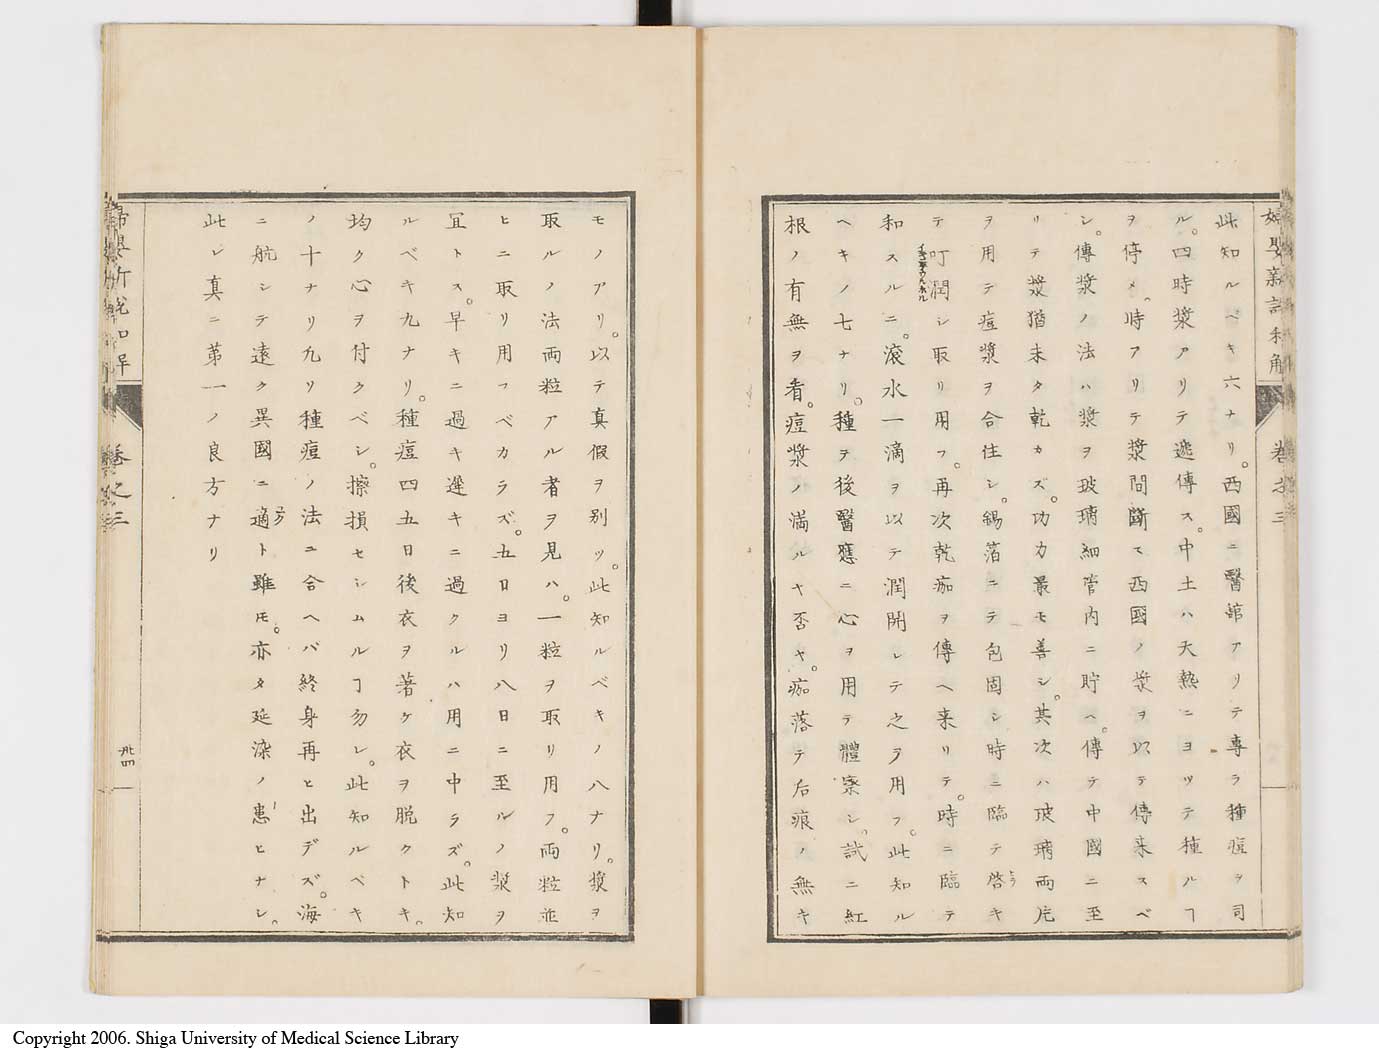 婦嬰新説和解
巻之三
此知ルベキ六ナリ。西國ニ醫舘アリテ專ラ種痘ヲ司
ル。四時漿アリテ逓傳ス。中土ハ天熱ニヨツテ種ルヿ
ヲ停メ、時アリテ漿間斷シテ西國ノ漿ヲ以テ傳来スベ
シ。傳漿ノ法ハ漿ヲ玻璃細管内ニ貯ヘ。傳テ中國ニ至
リテ漿猶未タ乾カズ。功力最モ善シ。其次ハ玻璃両片
ヲ用テ痘漿ヲ合住シ。錫箔ニテ包固シ時ニ臨テ啓キ
テ叮潤シ取リ用フ。再次乾痂ヲ傳ヘ来リテ。時ニ臨テ
和スルニ。滚水一滴ヲ以テ潤開シテ之ヲ用フ。此知ル
ヘキノ七ナリ。種テ後醫應ニ心ヲ用テ體察シ。試ニ紅
根ノ有無ヲ看。痘漿ノ満ルヤ否ヤ。痂落テ后痕ノ無キ
モノアリ。以テ真假ヲ別ツ。此知ルベキノ八ナリ。漿ヲ
取ルノ法両粒アル者ヲ見ハ。一粒ヲ取リ用フ。両粒並
ヒニ取リ用フベカラズ。五日ヨリ八日ニ至ルノ漿ヲ
冝トス。早キニ過キ遲キニ過クルハ用ニ中ラズ。此知
ルベキ九ナリ。種痘四五日後衣ヲ著ケ衣ヲ脱クトキ。
均ク心ヲ付クベシ。擦損セシムルヿ勿レ。此知ルベキ
ノ十ナリ九ソ種痘ノ法ニ合ヘバ終身再ヒ出デズ。海
ニ航シテ遠ク異國ニ適ト雖モ。亦タ延染ノ患ヒナシ。
此レ真ニ第一ノ良方ナリ
巻之三
卅四
Copyright 2006. Shiga University of Medical Science Library